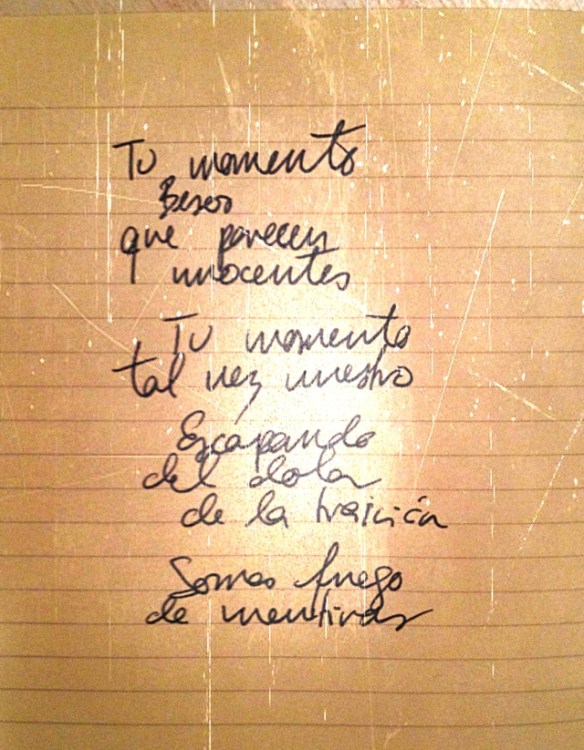 Tu momento
Besos
que parecen
inocentes
Tu momento
tal vez nuestro
Escapando
del dolor
de la traición
Somos fuego
de mentiras